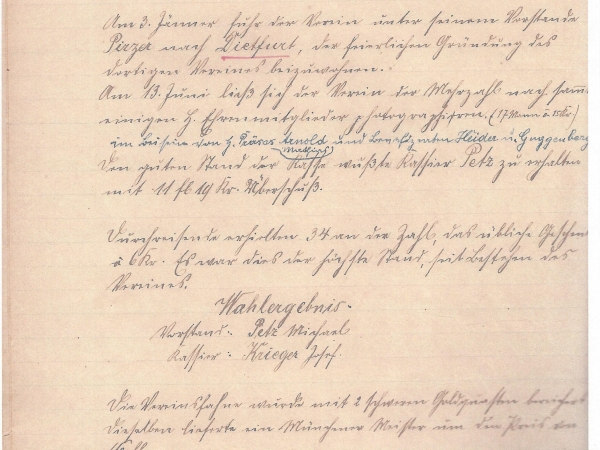 Am 3. Jänner fuhr der Verein unter seinem Vorstande
Pirzer nach Dietfurt, der feierlichen Gründung des
dortigen Vereines beizuwohnen.
Am 13. Juni ließ sich der Verein der Mehrzahl nach samt
einigen H. Ehrenmitglieder photographieren. (17 Mann à 15 Kr.)
im Beisein von H. Präses Arnold und Heider u. Guggenberg
Mathias
Den guten Stand der Kasse wußte Kassier Petz zu erhalten
mit 11 fl 19 Kr. Überschuß.
Durchreisende erhielten 34 an der Zahl, das übliche Geschen
à 6 Kr. Es war dies der höchste Stand, seit Bestehen des
Vereines.
Wahlergebnis.
Vorstand: Petz Michael
Kassier: Krieger Josef.
Die Vereinsfahne wurde mit 2 schweren Goldquasten
dieselben lieferte ein Münchener Meister um den Preis von